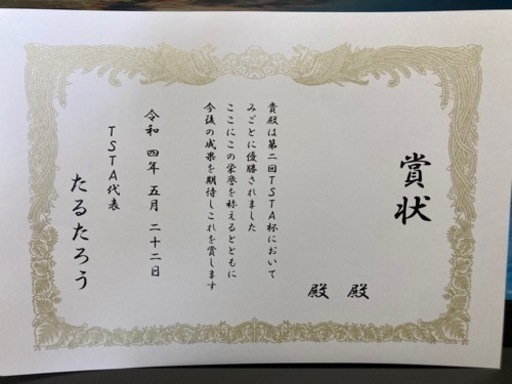 賞状
殿 殿
貴殿は第二回TSTA杯において
みごとに優勝されました
ここにこの栄誉を称えるとともに
今後の成果を期待しこれを賞します
令和 四年 五月 二十二日
TSTA代表
たるたろう